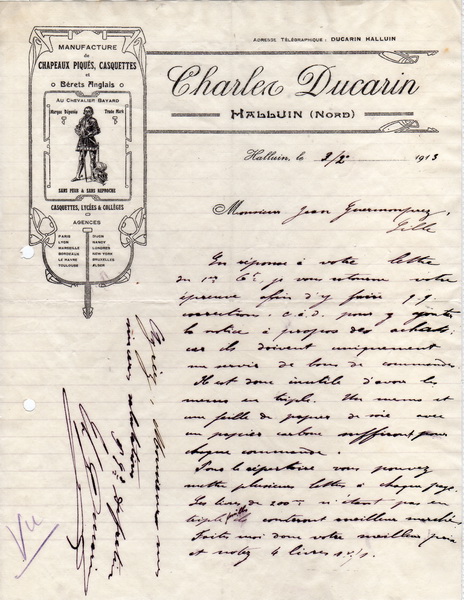 ADRESSE TÉLÉGRAPHIQUE : DUCARIN HALLUIN
MANUFACTURE
de
CHAPEAUX PIQUÉS, CASQUETTES
et
Bérets Anglais
AU CHEVALIER BAYARD
Marque Déposée Trade Mark
SANS PEUR & SANS REPROCHE
CASQUETTES, LYCÉES & COLLÈGES
AGENCES
PARIS DIJON
LYON NANCY
MARSEILLE LONDRES
BORDEAUX NEW YORK
LE HAVRE BRUXELLES
TOULOUSE
Charles Ducarin
HALLUIN (NORD)
Halluin, le 3/2 1913
Monsieur Jean
En réponse à votre lettre
du 1er je vous retourne votre
épreuve afin d'y faire
correction. c.à.d. pour y ajouter
la notice à propos des
car ils doivent uniquement
au service de bons de commandes
Il est donc inutile d'avoir les
mêmes en triple. Un même et
une feuille de papier de soie avec
un papier carbone suffiront pour
chaque commande.
Pour le répertoire vous pouvez
mettre plusieurs lettres à chaque page.
Les livres de 200 n'étant pas en
triple ils coûteront meilleur marché
Faites moi donc votre meilleur prix
et notez 4 livres
Vu